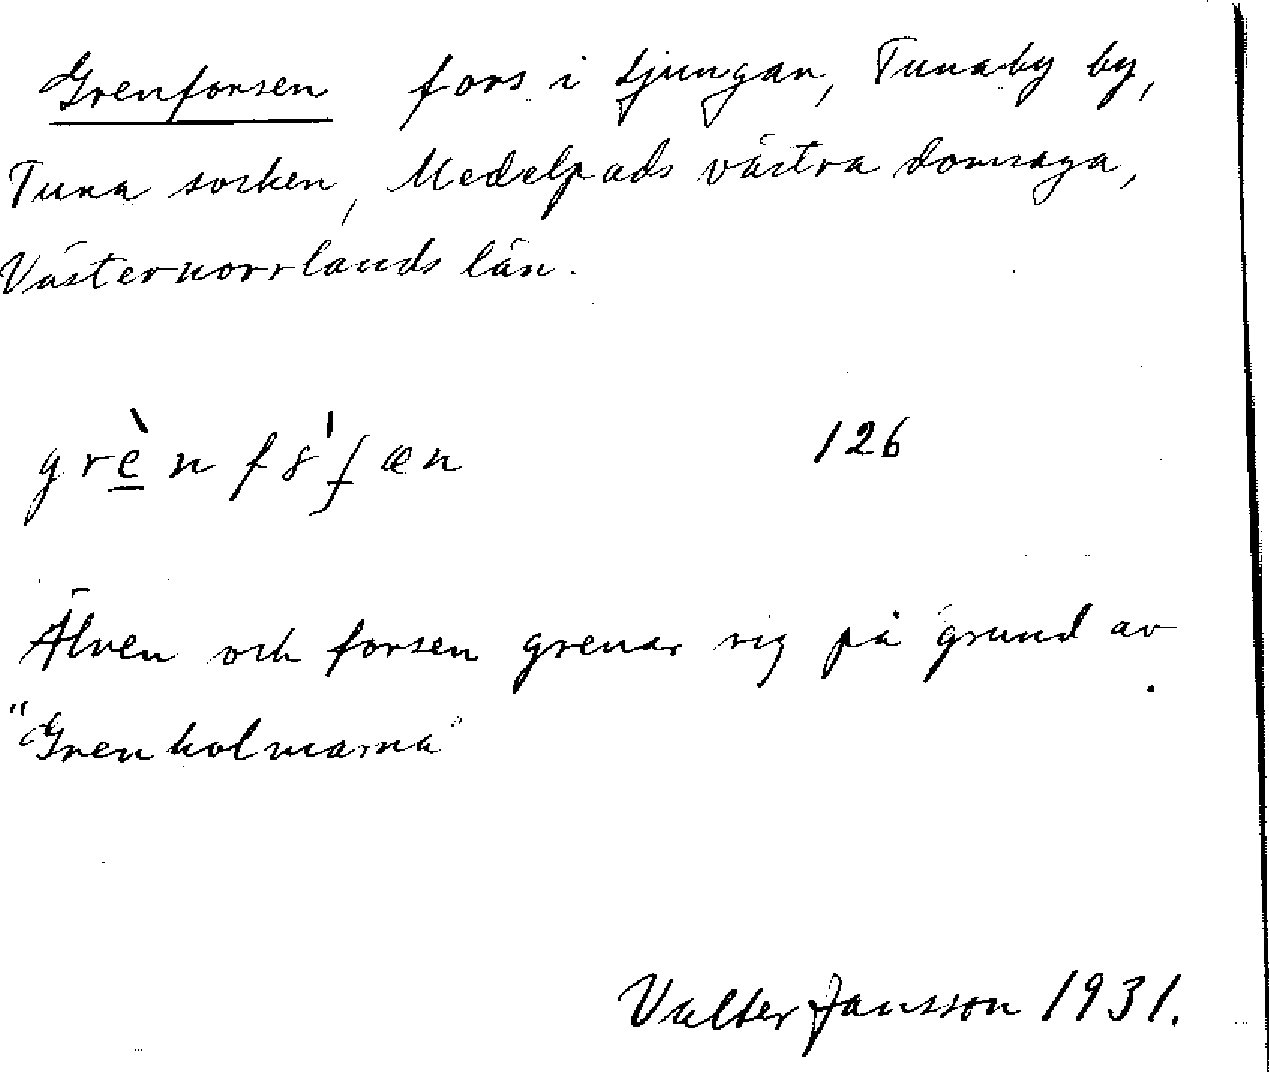 Grenforsen fors i Ljungan, Tunaby by,
Tuna socken, Medelpads västra domsaga,
Västernorrlands län.
126
Älven och forsen grenar sig på grund av
"Grenholmarna".
Valter Jansson 1931.